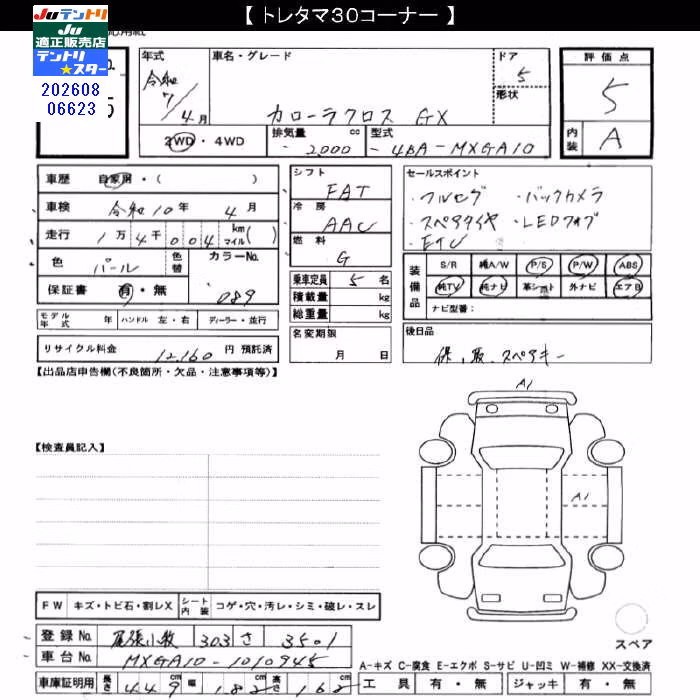 【 トレタマ30コーナー 】
Juテントリ
Ju
適正販売店
テントリ
★スター
202608
06623
年式
令和
7/4月
車名・グレード
カローラクロス GX
ドア
5
形状
評価点
5
内装
A
2WD・4WD
排気量 cc
2000
型式
4BA-MXGA10
車歴 自家用・( )
車検 令和10年 4月
走行 1万4千004 km マイル( )
色 パール 色替
カラーNo.
089
保証書 有・無
シフト
FAT
冷房
AAC
燃料
G
乗車定員 5 名
積載量 kg
総重量 kg
名変期限
月 日
セールスポイント
・フルセグ ・バックカメラ
・スペアタイヤ ・LEDフォグ
・ETC
装備品
S/R 純A/W P/S P/W ABS
純TV 純ナビ 革シート 外ナビ エアB
ナビ型番:
モデル年式 年 ハンドル 左・右 ディーラー・並行
リサイクル料金 12,160 円 預託済
後日品
保、取、スペアキー
【出品店申告欄(不良箇所・欠品・注意事項等)】
A1
【検査員記入】
A1
FW キズ・トビ石・割レX シート内装 コゲ・穴・汚レ・シミ・破レ・スレ
登録No. 尾張小牧 303 さ 3501
車台No. MXGA10-1010945
スペア
A-キズ C-腐食 E-エクボ S-サビ U-凹ミ W-補修 XX-交換済
車庫証明用 長さ 449 cm 幅 182 cm 高さ 162 cm
工具 有・無 ジャッキ 有・無